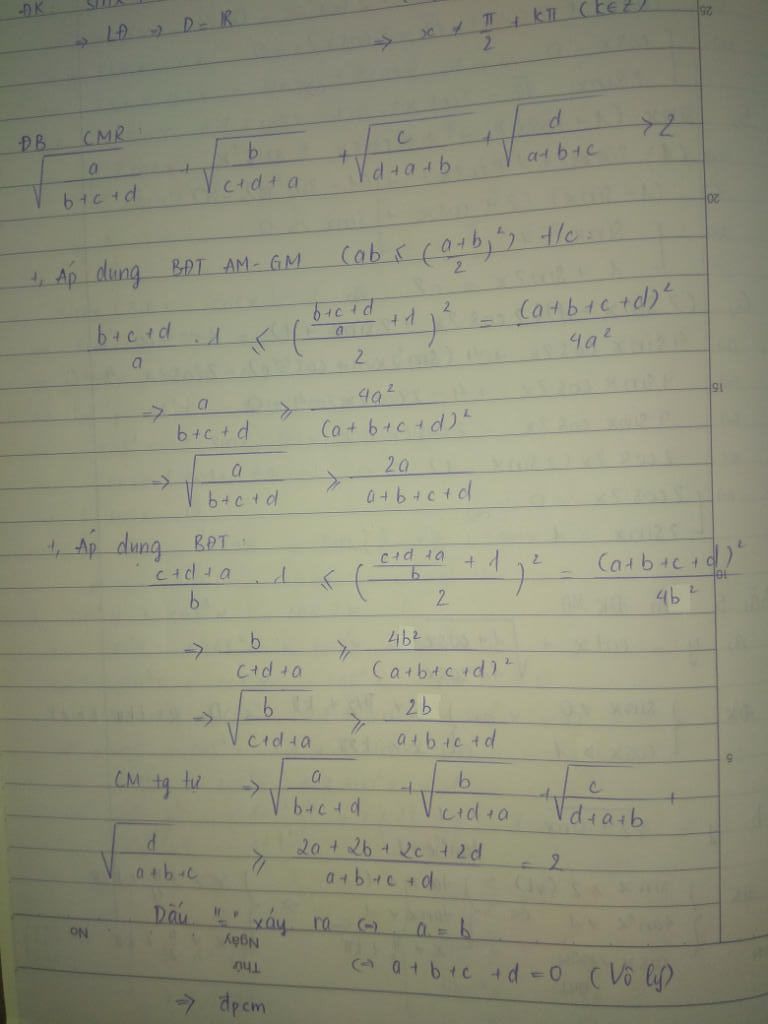 ĐK sinx
=> LĐ => D = R => x ≠ π/2 + kπ (k∈Z)
ĐB CMR:
√(a/(b+c+d)) + √(b/(c+d+a)) + √(c/(d+a+b)) + √(d/(a+b+c)) > 2
+, Áp dụng BĐT AM-GM (ab ≤ ((a+b)/2)²) t/c:
(b+c+d)/a . 1 ≤ (((b+c+d)/a + 1)/2)² = (a+b+c+d)²/4a²
=> a/(b+c+d) ≥ 4a²/(a+b+c+d)²
=> √(a/(b+c+d)) ≥ 2a/(a+b+c+d)
+, Áp dụng BĐT:
(c+d+a)/b . 1 ≤ (((c+d+a)/b + 1)/2)² = (a+b+c+d)²/4b²
=> b/(c+d+a) ≥ 4b²/(a+b+c+d)²
=> √(b/(c+d+a)) ≥ 2b/(a+b+c+d)
CM tg tự => √(a/(b+c+d)) + √(b/(c+d+a)) + √(c/(d+a+b)) +
√(d/(a+b+c)) ≥ (2a+2b+2c+2d)/(a+b+c+d) = 2
Dấu "=" xảy ra <=> a = b
<=> a+b+c+d=0 (Vô lý)
=> đpcm
No
Ngày
Thứ
5
10
15
20
25